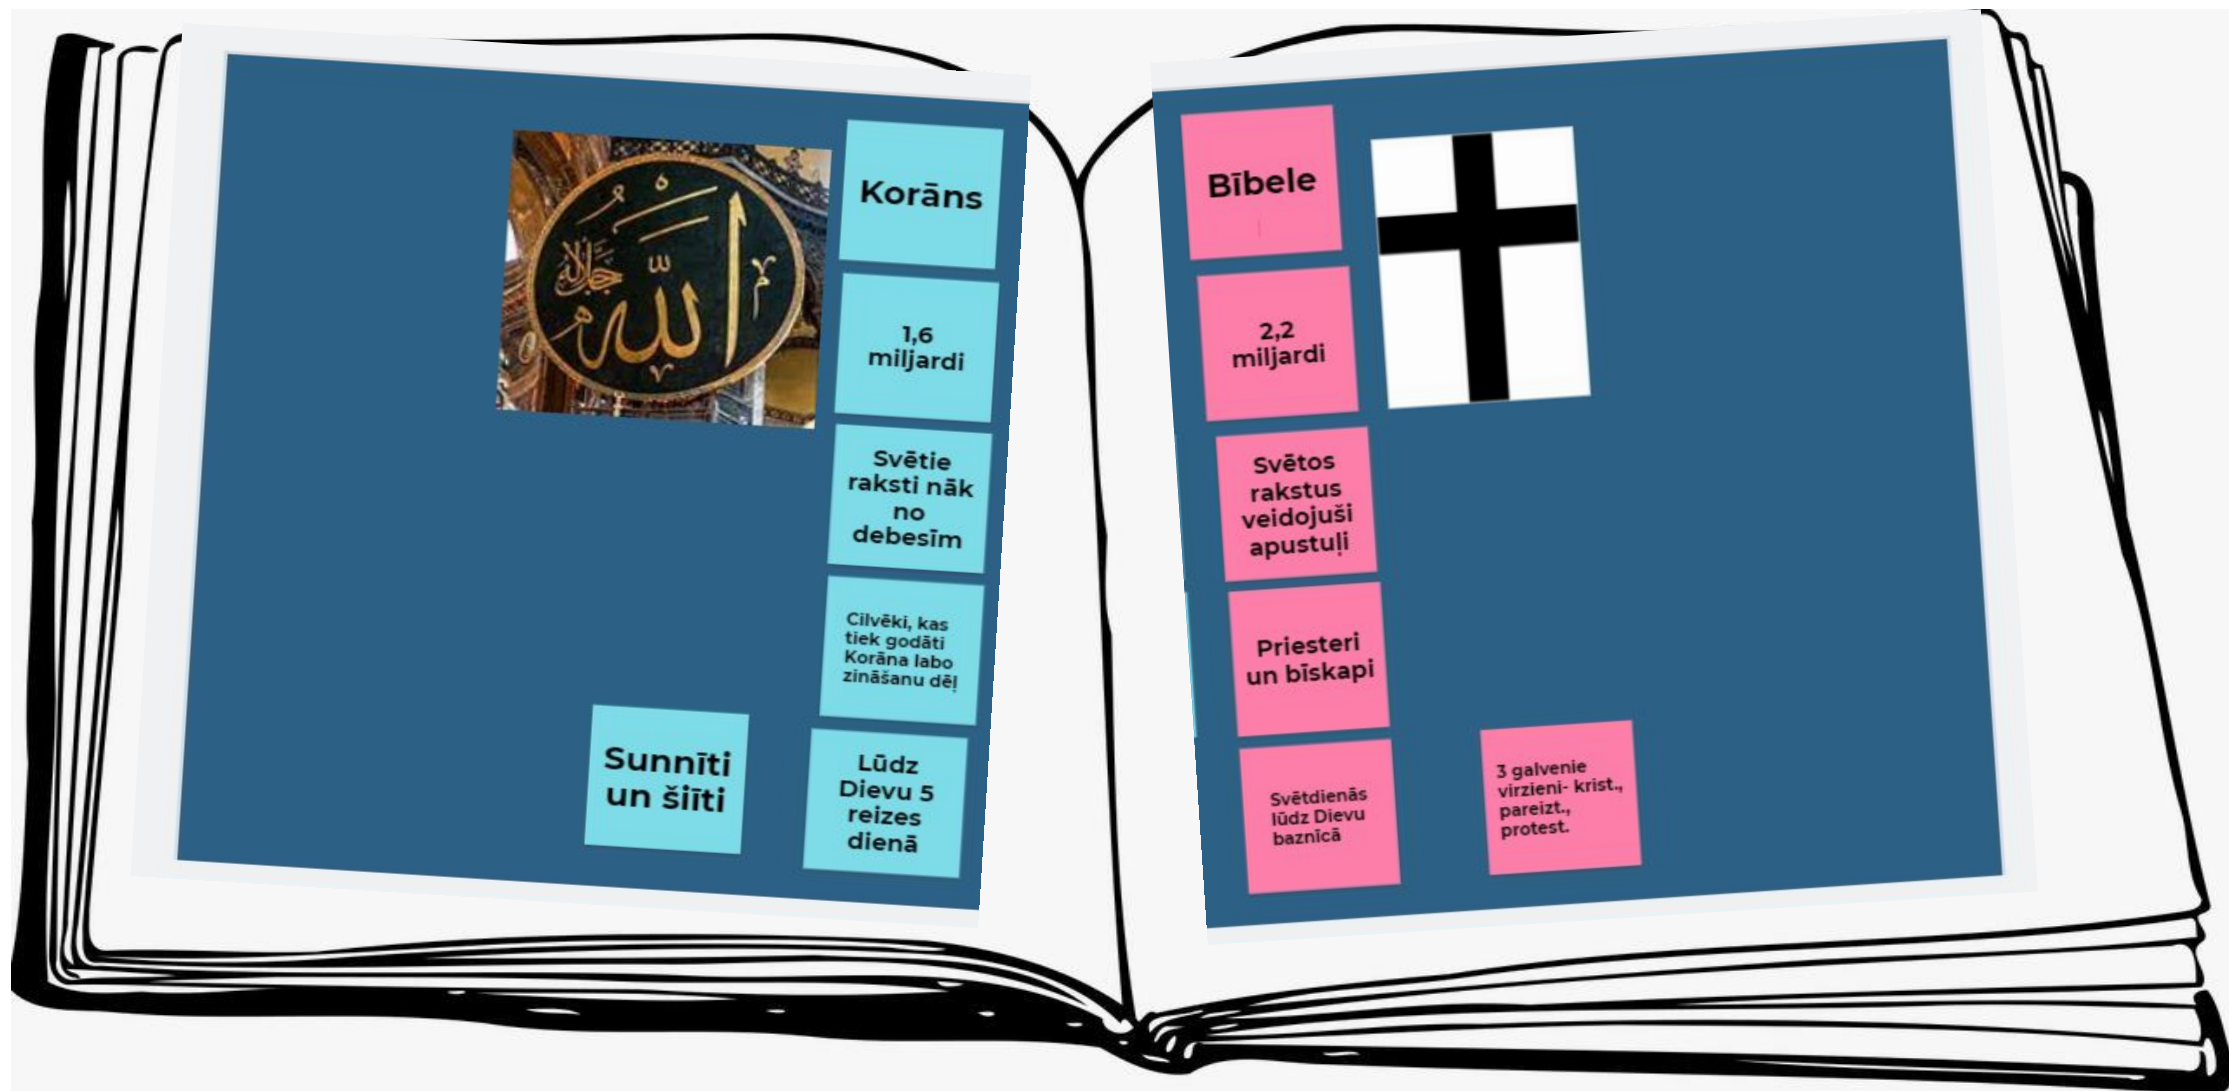 الله
جل جلاله
Korāns
1,6
miljardi
Svētie
raksti nāk
no
debesīm
Cilvēki, kas
tiek godāti
Korāna labo
zināšanu dēļ
Sunnīti
un šiīti
Lūdz
Dievu 5
reizes
dienā
Bībele
2,2
miljardi
Svētos
rakstus
veidojuši
apustuļi
Priesteri
un bīskapi
Svētdienās
lūdz Dievu
baznīcā
3 galvenie
virzieni- krist.,
pareizt.,
protest.